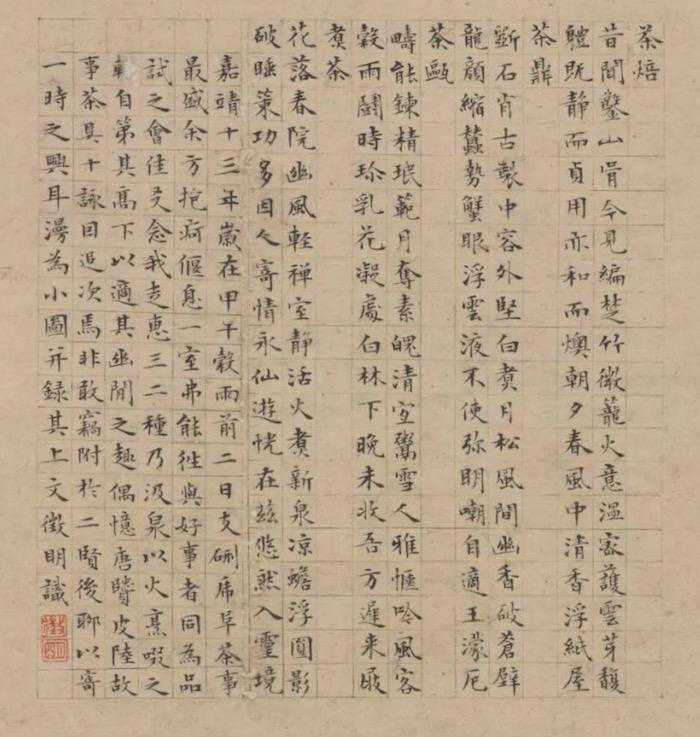 茶焙
昔聞鑿山骨今見編楚竹微籠火意温密護雲芽馥
體既静而貞用亦和而燠朝夕春風中清香浮紙屋
茶鼎
斵石肖古製中容外堅白煑月松風間幽香破蒼壁
龍顏縮蠢勢蟹眼浮雲液不使弥明嘲自適王濛厄
茶甌
疇能鍊精珉範月奪素魄清宜鬻雪人雅愜吟風客
穀雨鬪時珎乳花凝處白林下晚未收吾方遲来屐
煑茶
花落春院幽風輕禅室静活火煑新泉凉蟾浮圓影
破睡策功多因人寄情永仙遊恍在兹悠然入靈境
嘉靖十三年歲在甲午穀雨前二日支硎虎阜茶事
最盛余方抱疴偃息一室弗能徃與好事者同為品
試之會佳友念我走惠三二種乃汲泉以火烹啜之
輒自第其高下以適其幽閒之趣偶憶唐賢皮陸故
事茶具十詠因追次焉非敢竊附於二賢後聊以寄
一時之興耳漫為小圖并録其上文徵明識
徵明